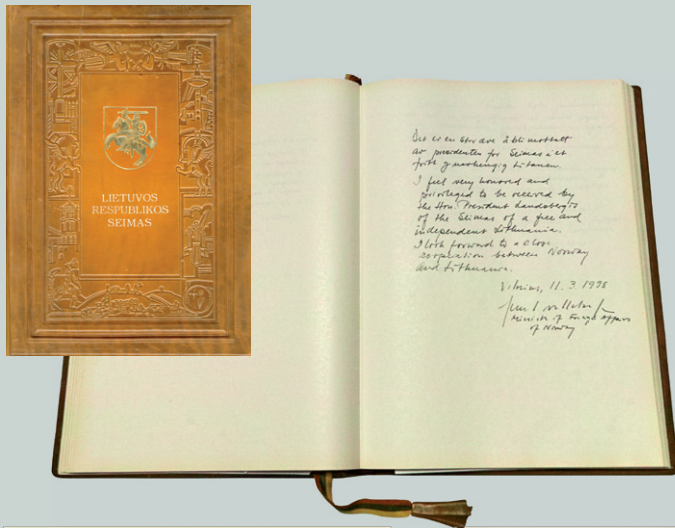 LIETUVOS
RESPUBLIKOS
SEIMAS
Det er en stor ære å bli mottatt
av presidenten for Seimas i et
fritt uavhengig Litauen.
I feel very honored and
privileged to be received by
the Hon. President Landsbergis
of the Seimas of a free and
independent Lithuania.
I look forward to a close
cooperation between Norway
and Lithuania.
Vilnius, 11.3.1998
Minister of Foreign Affairs
of Norway